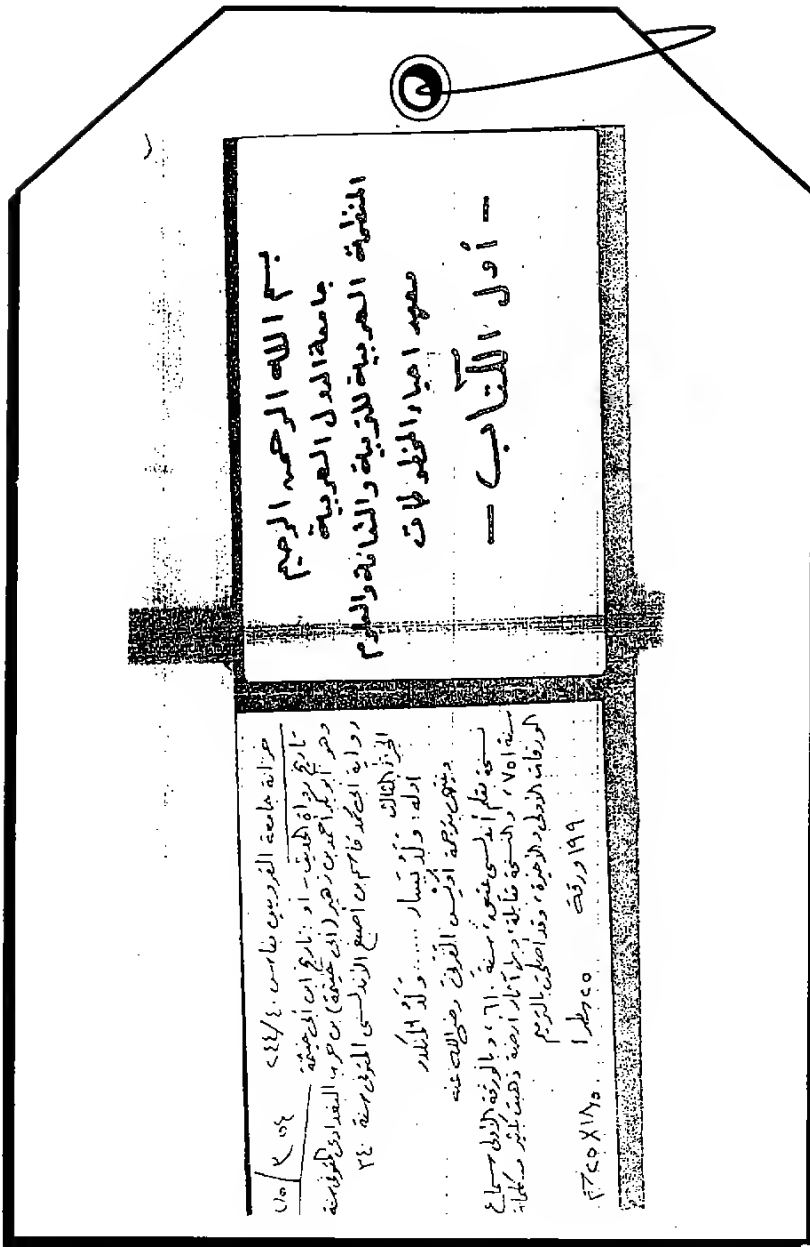 بسم الله الرحمن الرحيم
جامعة الدول العربية
المنظمة العربية للتربية والثقافة والعلوم
معهد احياء المخطوطات
- أول الكتاب -
خزانة جامعة القرويين بفاس ٢٤٤/٤٠
تاريخ رواة الحديث - أو : تاريخ ابن أبي خيثمة
وهو أبو بكر أحمد بن زهير (أبي خيثمة) بن حرب البغدادي المتوفى سنة
رواية أبي محمد قاسم بن أصبغ الأندلسي المتوفى سنة ٣٤٠
الجزء الثالث
أوله : ولد يسار ..... ولد المنكدر
وينتهي بترجمة أويس القرني رضي الله عنه
نسخة بقلم أندلسي عتيق ، سنة ، وبالورقة الأولى سماع
سنة ٧٥١ ، والنسخة مقابلة ، وبها آثار أرضة ذهبت بكثير من كلمات
الورقات الأولى والأخيرة ، وقد أصلحت بالترميم
١٩٩ ورقة ٢٥ سطرا ١٨٫٥X٢٥ سم